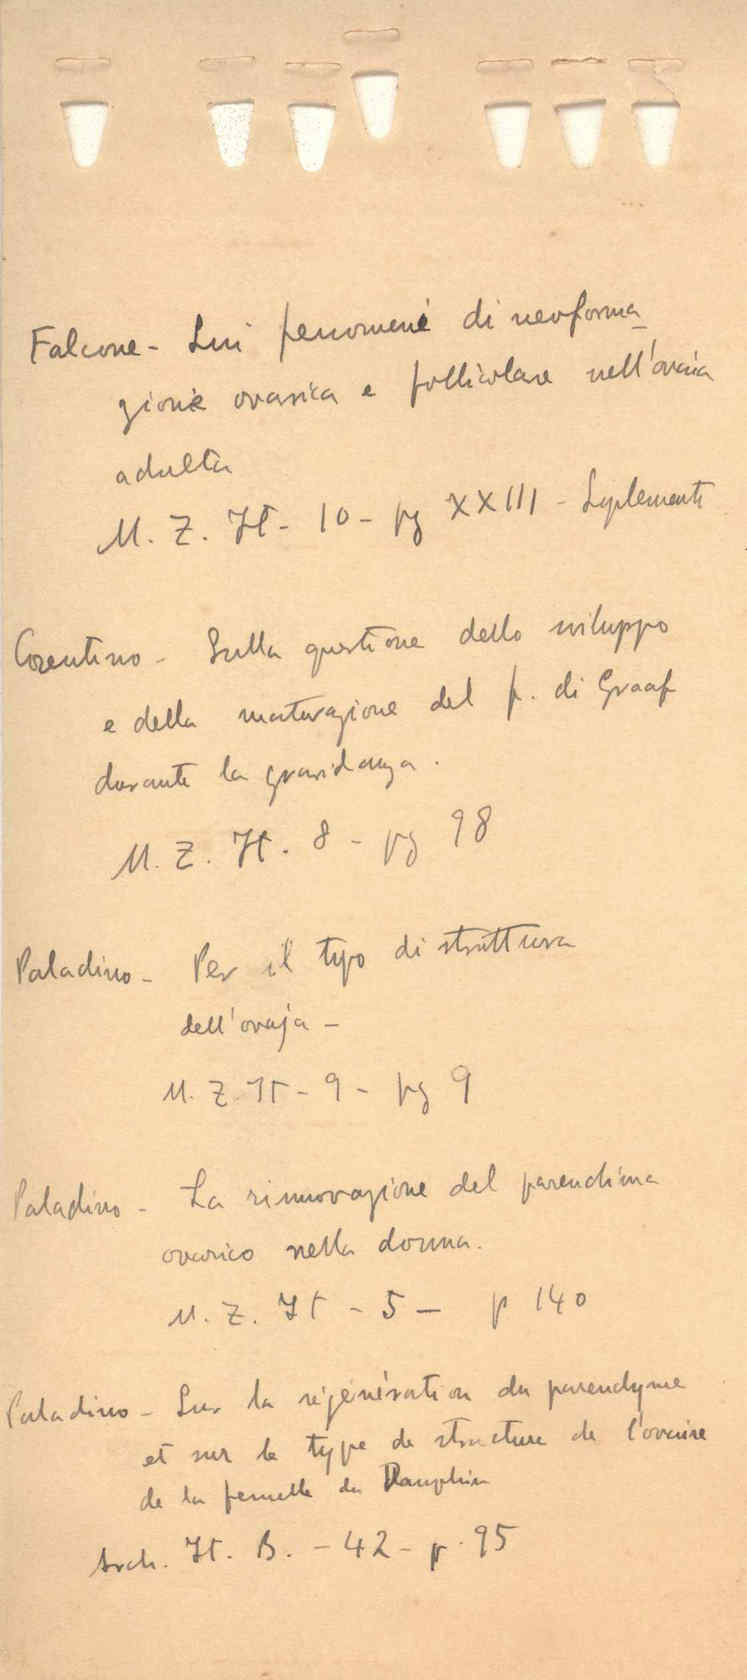 Falcone - Sui fenomeni di neoforma_
zione ovarica e follicolare nell'ovaia
adulta
M. Z. It - 10 - pg XXIII - Suplementi
Cosentino - Sulla questione dello sviluppo
e della maturazione del f. di Graaf
durante la gravidanza.
M. Z. It. 8 - pg 98
Paladino - Per il tipo di struttura
dell'ovaja -
M. Z. It - 9 - pg 9
Paladino - La rinnovazione del parenchima
ovarico nella donna.
M. Z. It - 5 - p 140
Paladino - Sur la régénération du parenchyme
et sur le type de structure de l'ovaire
de la femelle du Dauphin
Arch. It. B. - 42 - p. 95